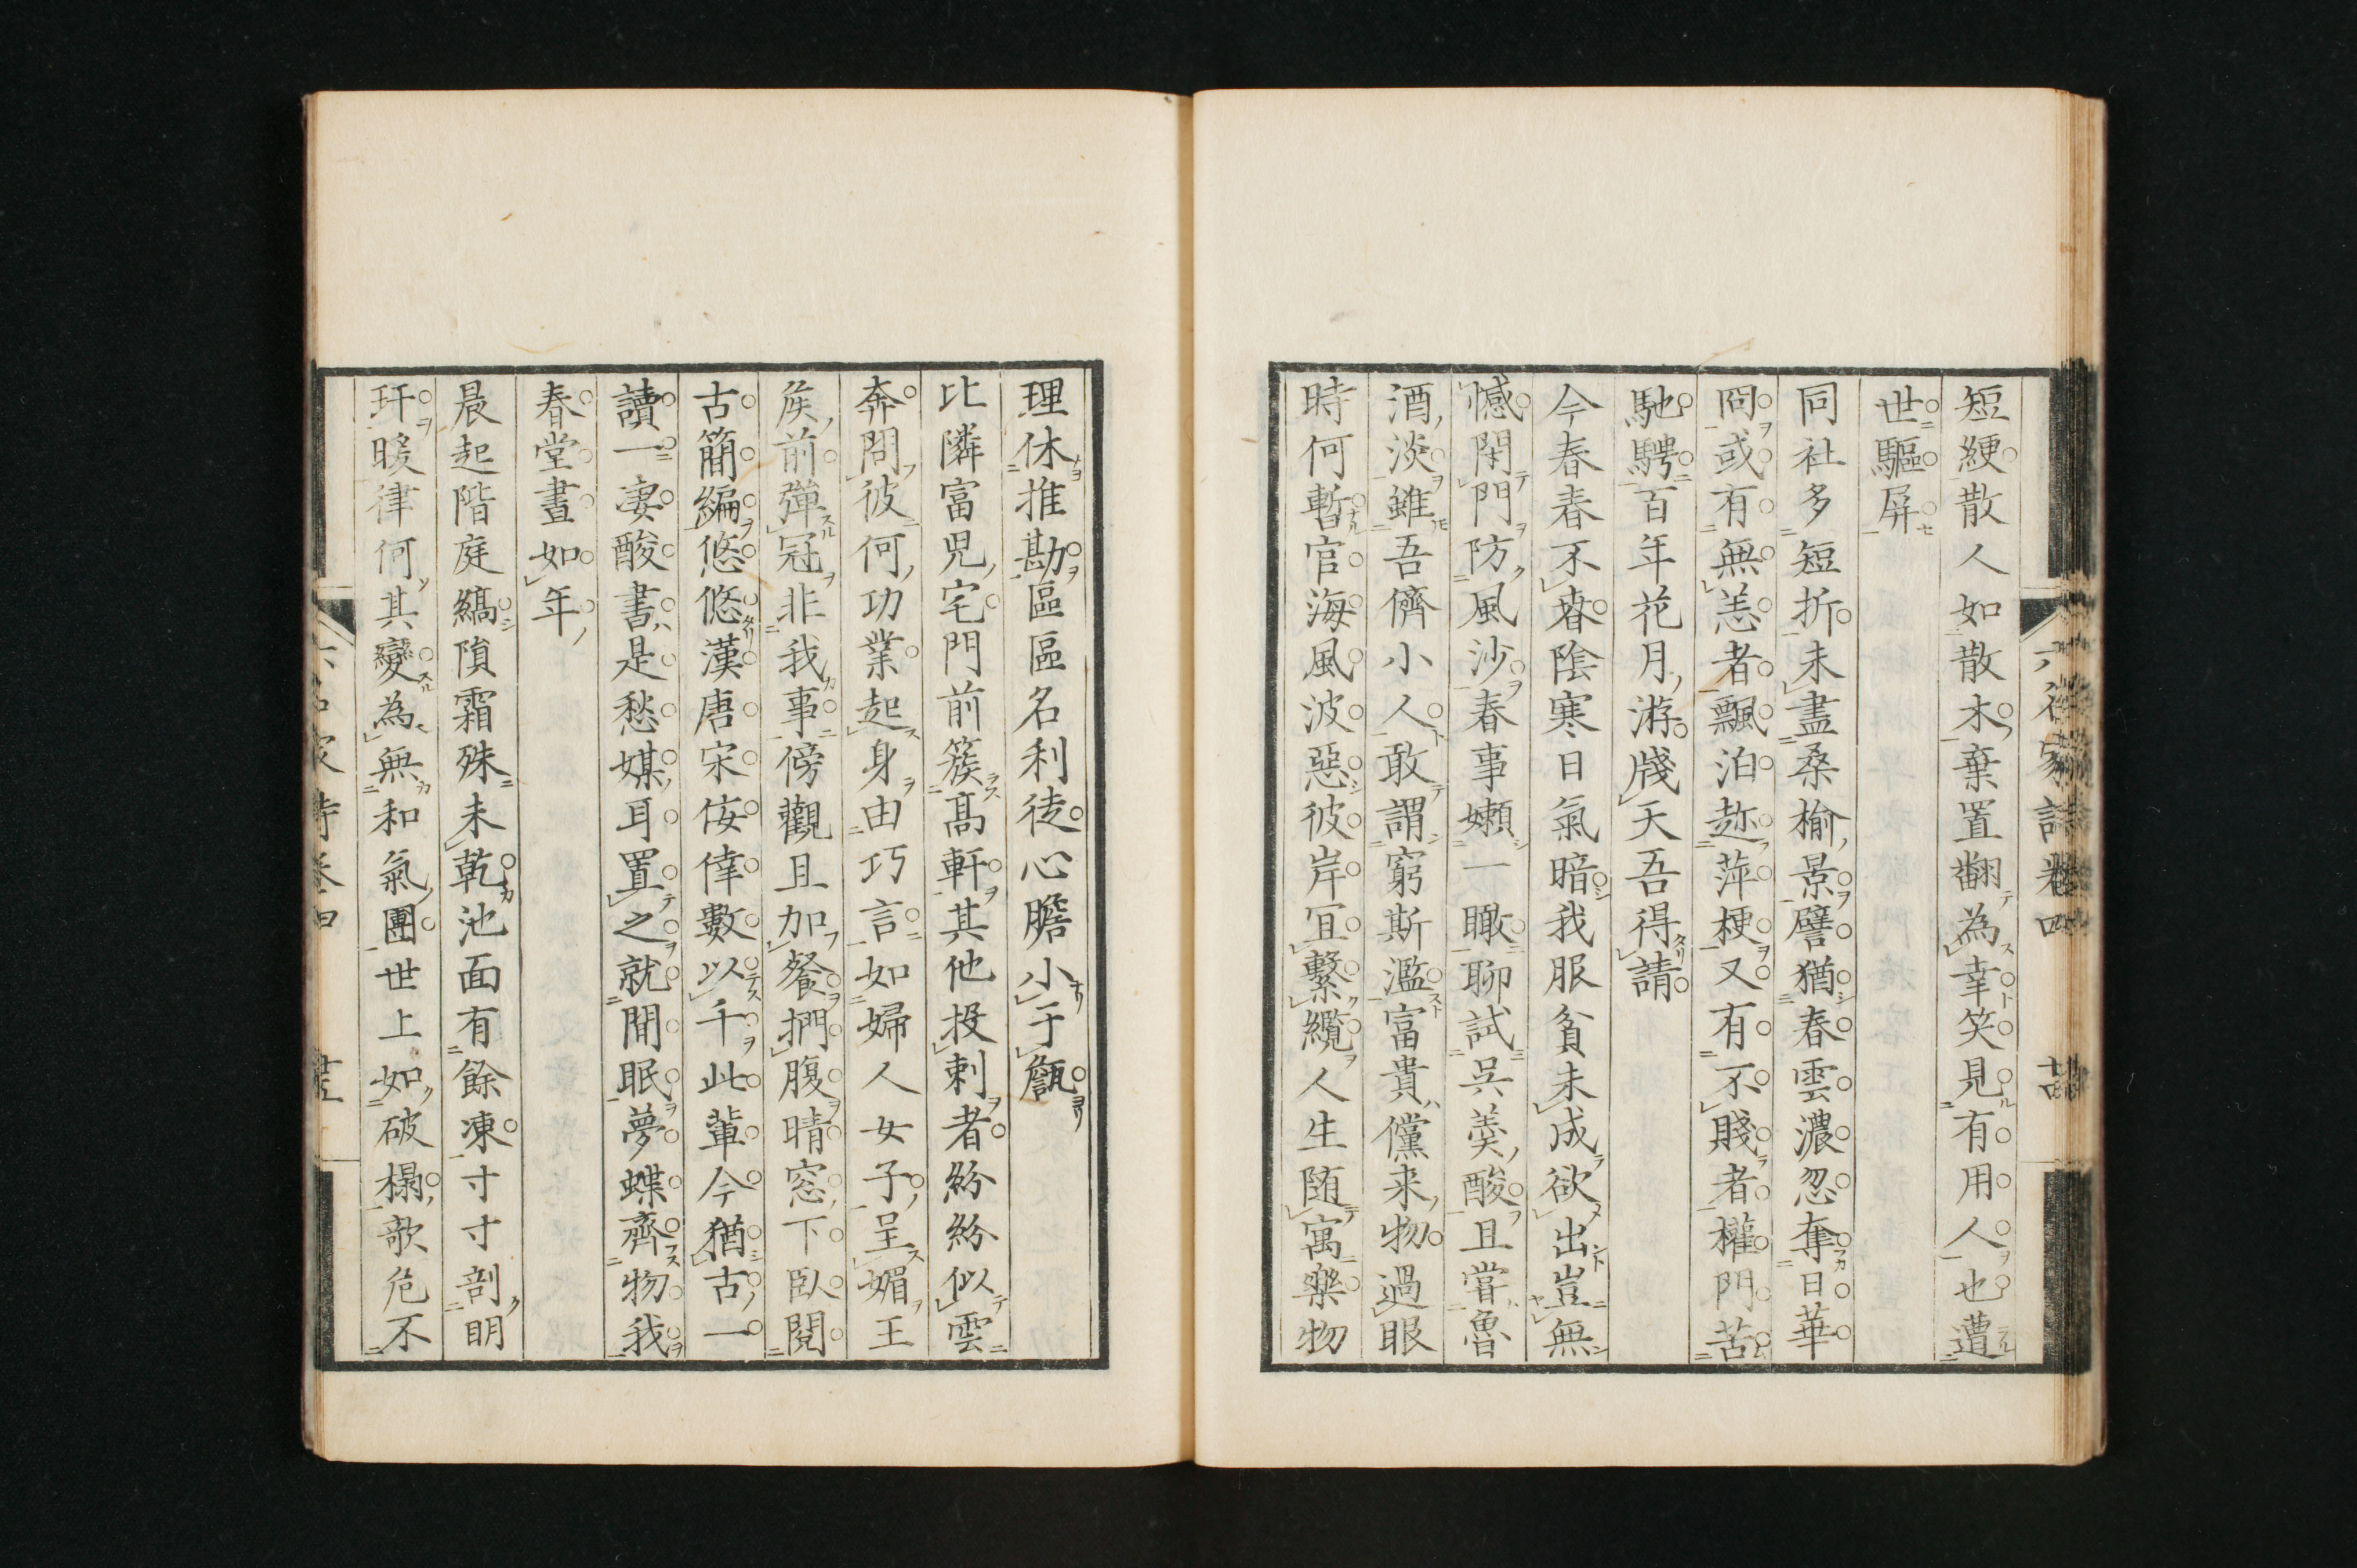 短綆散人如散木棄置翻為幸笑見有用人也遭
世驅屏
同社多短折未盡桑榆景譬猶春雲濃忽奪日華
冏或有無恙者飄泊趂萍梗又有不賤者權門苦
馳騁百年花月游賤天吾得請
今春春不春陰寒日氣暗我服貧未成欲出豈無
憾閑門防風沙春事嬾一瞰聊試呉羮酸且嘗魯
酒淡雖吾儕小人敢謂窮斯濫富貴儻来物過眼
時何暫官海風波惡彼岸宜繫纜人生随寓樂物
理休推勘區區名利徒心膽小于甔
比隣富児宅門前簇髙軒其他投刺者紛紛似雲
奔問彼何功業起身由巧言如婦人女子呈媚王
矦前彈冠非我事傍觀且加餐捫腹晴窓下臥閱
古簡編悠悠漢唐宋侫倖數以千此輩今猶古一
讀一凄酸書是愁媒耳置之就閒眠夢蝶齊物我
春堂晝如年
晨起階庭縞隕霜殊未乾池面有餘凍寸寸剖明
玕暖律何其變為無和氣團世上如破榻欹危不